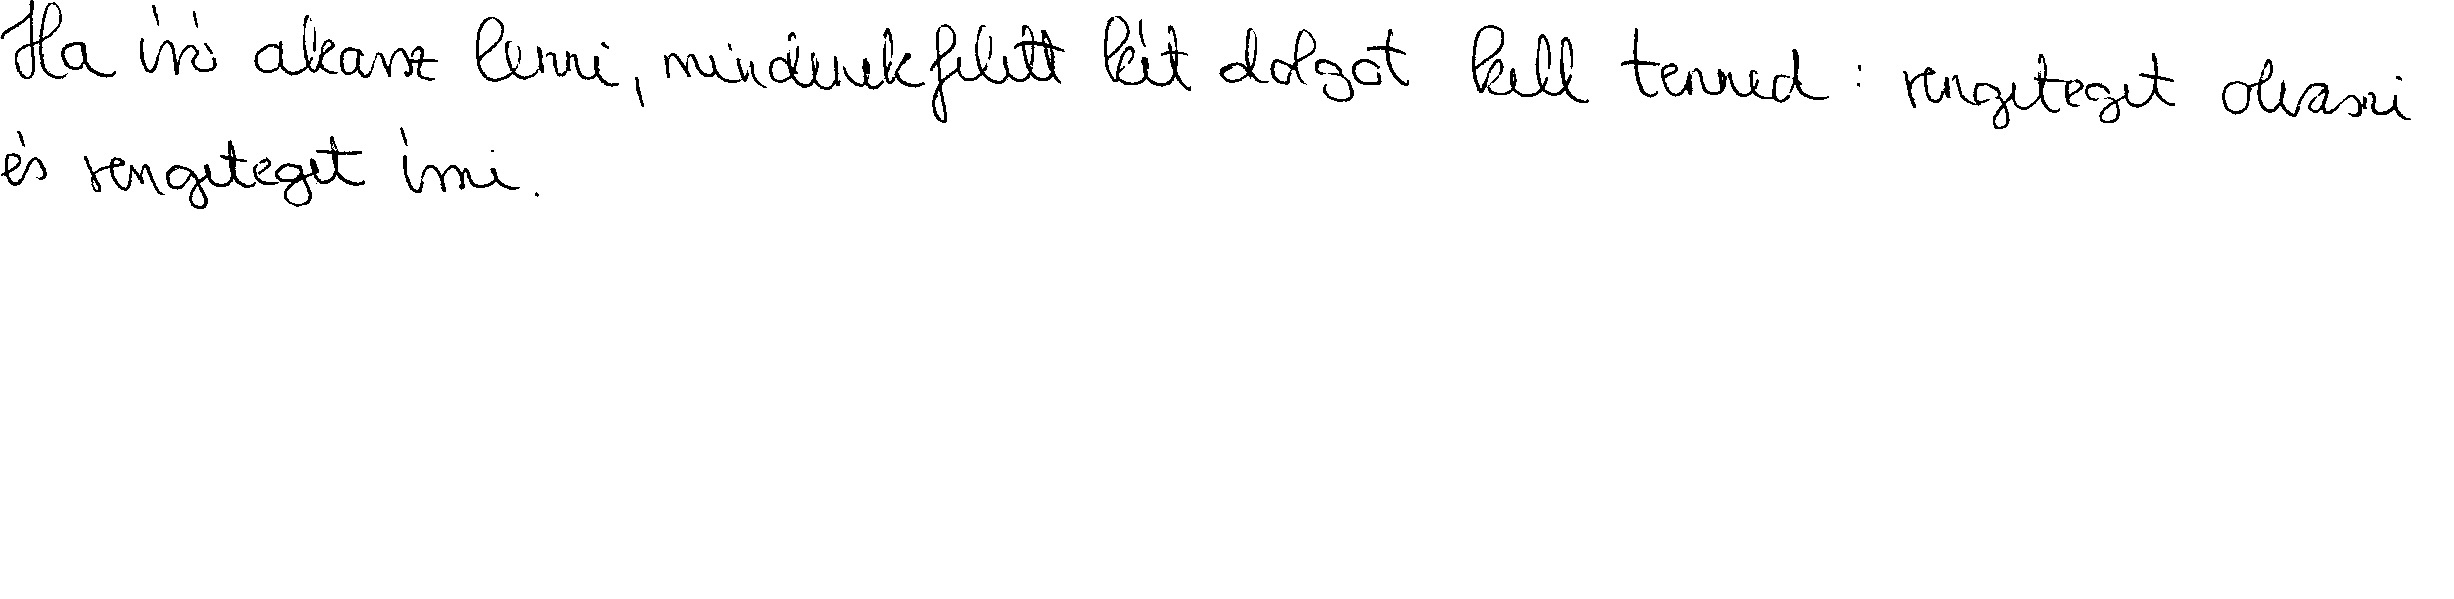 Ha író akarsz lenni, mindenekfelett két dolgot kell tenned: rengeteget olvasni
és rengeteget írni.